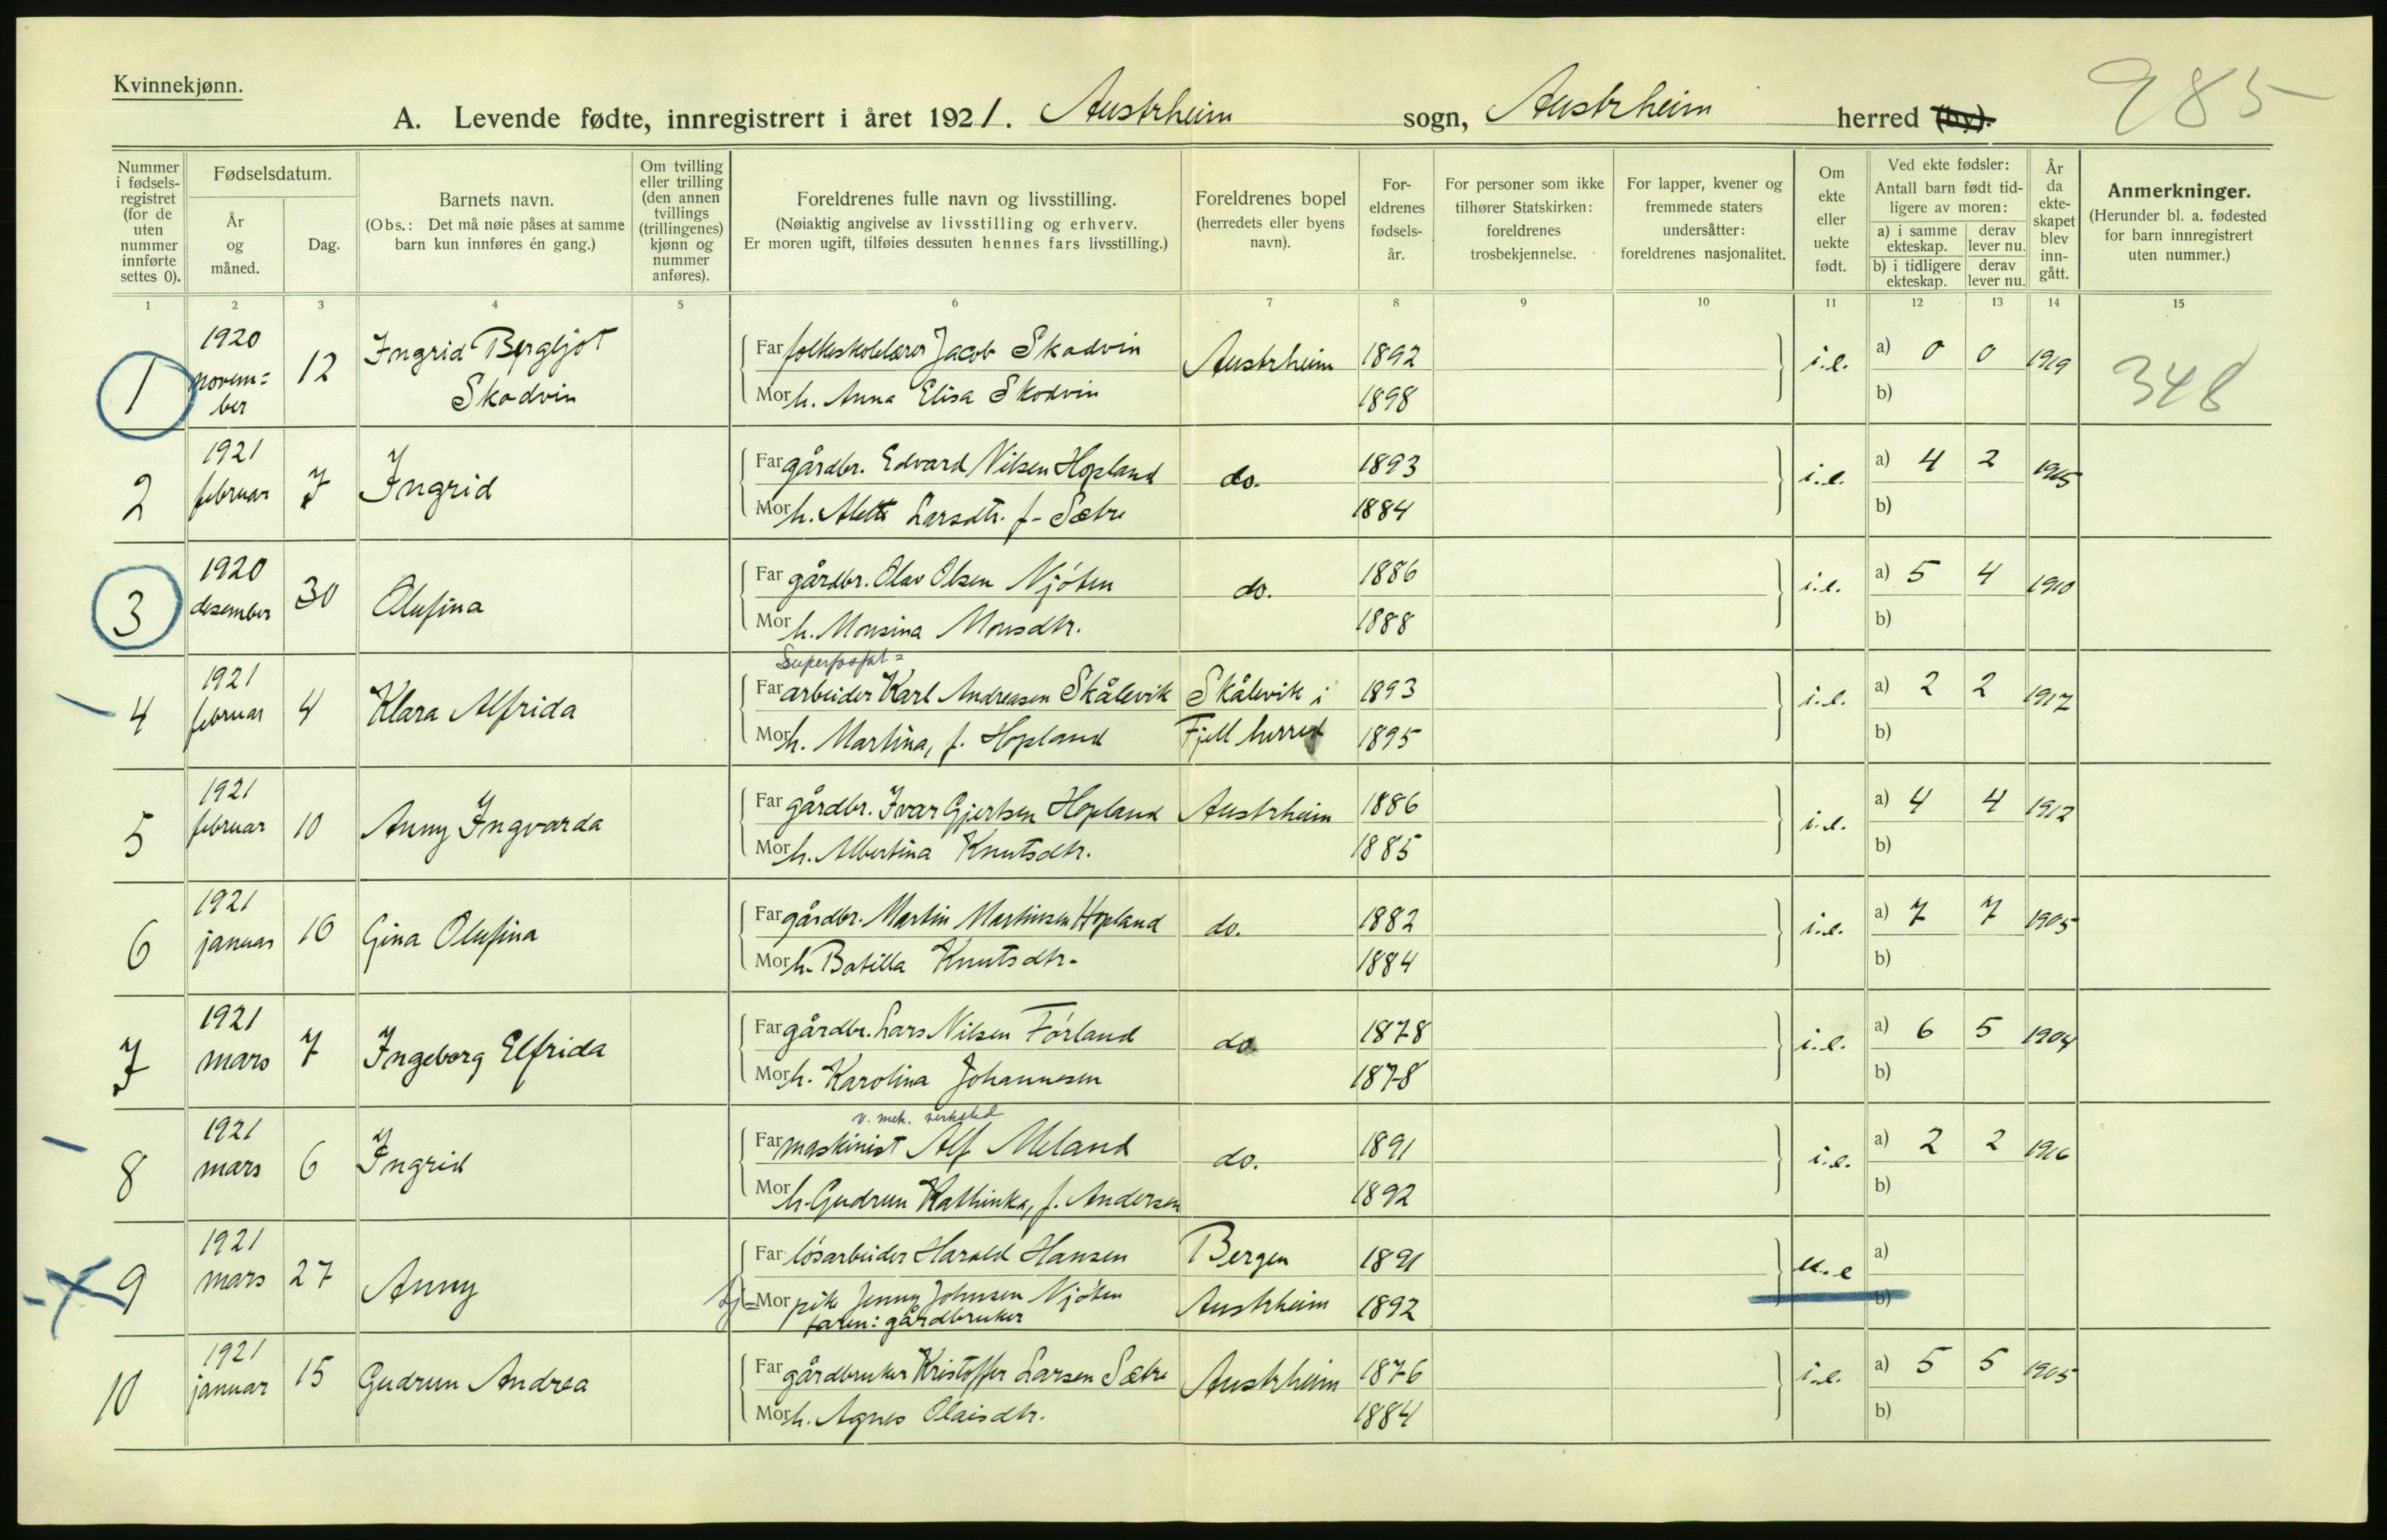 Kvinnekjønn.
985
A. Levende fødte, innregistrert i året 1921. Austrheim sogn, Austrheim herred (by).
Nummer i fødsels- registret (for de uten nummer innførte settes 0).
Fødselsdatum.
År og måned.
Dag.
Barnets navn.
(Obs.: Det må nøie påses at samme barn kun innføres én gang.)
Om tvilling eller trilling (den annen tvillings (trillingenes) kjønn og nummer anføres).
Foreldrenes fulle navn og livsstilling.
(Nøiaktig angivelse av livsstilling og erhverv.
Er moren ugift, tilføies dessuten hennes fars livsstilling.)
Foreldrenes bopel (herredets eller byens navn).
For- eldrenes fødsels- år.
For personer som ikke tilhører Statskirken: foreldrenes trosbekjennelse.
For lapper, kvener og fremmede staters undersåtter: foreldrenes nasjonalitet.
Om ekte eller uekte født.
Ved ekte fødsler:
Antall barn født tid- ligere av moren:
a) i samme ekteskap. derav lever nu.
b) i tidligere ekteskap. derav lever nu.
År da ekte- skapet blev inn- gått.
Anmerkninger.
(Herunder bl. a. fødested for barn innregistrert uten nummer.)
1 2 3 4 5 6 7 8 9 10 11 12 13 14 15
1 1920 novem= ber 12 Ingrid Bergljot Skodvin
Far folkeskolelærer Jacob Skodvin Austrheim 1892 i.e. a) 0 0 1919 348
Mor h. Anna Elisa Skodvin 1898 b)
2 1921 februar 7 Ingrid
Far gårdbr. Edvard Nilsen Hopland do. 1893 i.e. a) 4 2 1915
Mor h. Alette Larsdtr. f. Sætre 1884 b)
3 1920 desember 30 Olufina
Far gårdbr. Olav Olsen Njøten do. 1886 i.e. a) 5 4 1910
Mor h. Monsina Monsdtr. 1888 b)
Superfosfat=
4 1921 februar 4 Klara Alfrida
Far arbeider Karl Andreasen Skålevik Skålevik i 1893 i.e. a) 2 2 1917
Mor h. Martina, f. Hopland Fjell herred 1895 b)
5 1921 februar 10 Anny Ingvarda
Far gårdbr. Ivar Gjertsen Hopland Austrheim 1886 i.e. a) 4 4 1912
Mor h. Albertina Knutsdtr. 1885 b)
6 1921 januar 16 Gina Olufina
Far gårdbr. Martin Martinsen Hopland do. 1882 i.e. a) 7 7 1905
Mor h. Botilla Knutsdtr. 1884 b)
7 1921 mars 7 Ingeborg Elfrida
Far gårdbr. Lars Nilsen Førland do 1878 i.e. a) 6 5 1904
Mor h. Karolina Johannesen 1878 b)
v. mek. verksted
8 1921 mars 6 Ingrid
Far maskinist Alf Meland do. 1891 i.e. a) 2 2 1916
Mor h. Gudrun Kathinka, f. Andersen 1892 b)
9 1921 mars 27 Anny
Far løsarbeider Harald Hansen Bergen 1891 u.e a)
Mor pike Jenny Johnsen Njøten Austrheim 1892 b)
faren: gårdbruker
10 1921 januar 15 Gudrun Andrea
Far gårdbruker Kristoffer Larsen Sætre Austrheim 1876 i.e. a) 5 5 1905
Mor h. Agnes Olaisdtr. 1884 b)